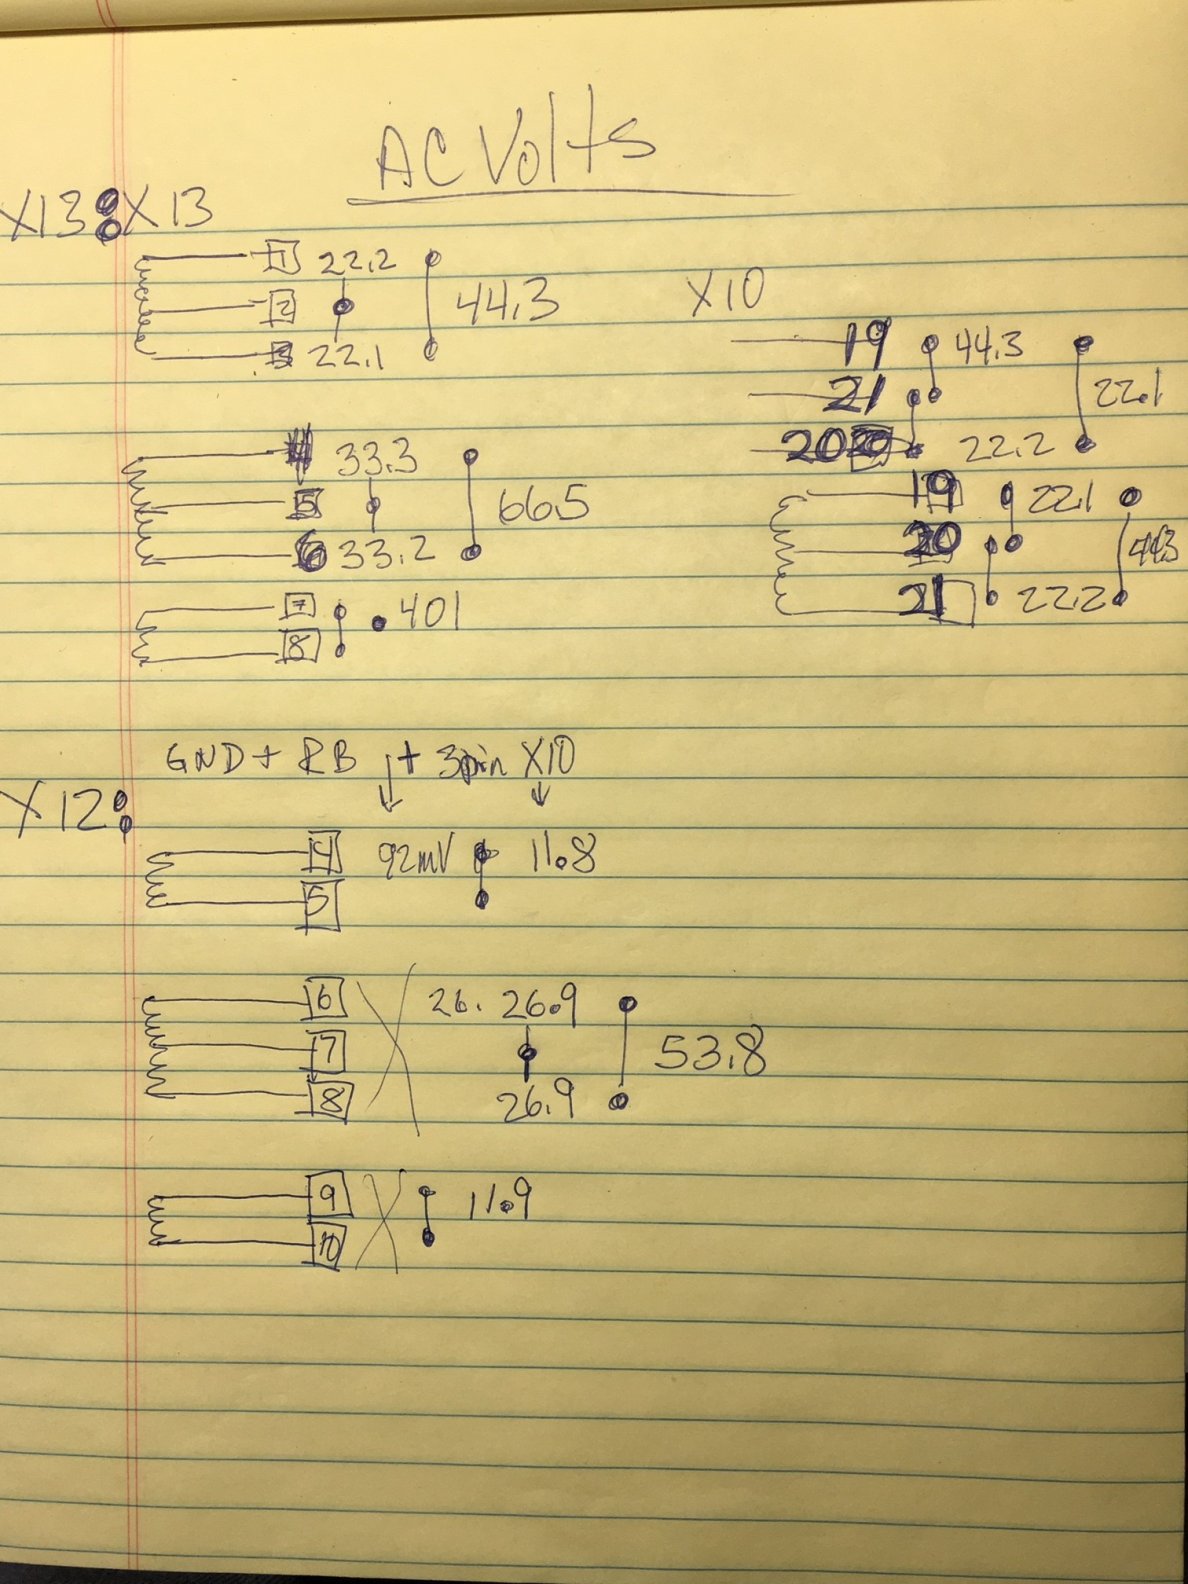 AC Volts
X13: X13
1 22.2
2 44.3
3 22.1
4 33.3
5 66.5
6 33.2
7 401
8
X10
19 44.3
21 22.1
20 20 22.2
19 22.1
20 44.3
21 22.2
GND + RB + 3pin X10
X12:
4 92mV 11.8
5
6 26. 26.9
7 53.8
8 26.9
9 11.9
10